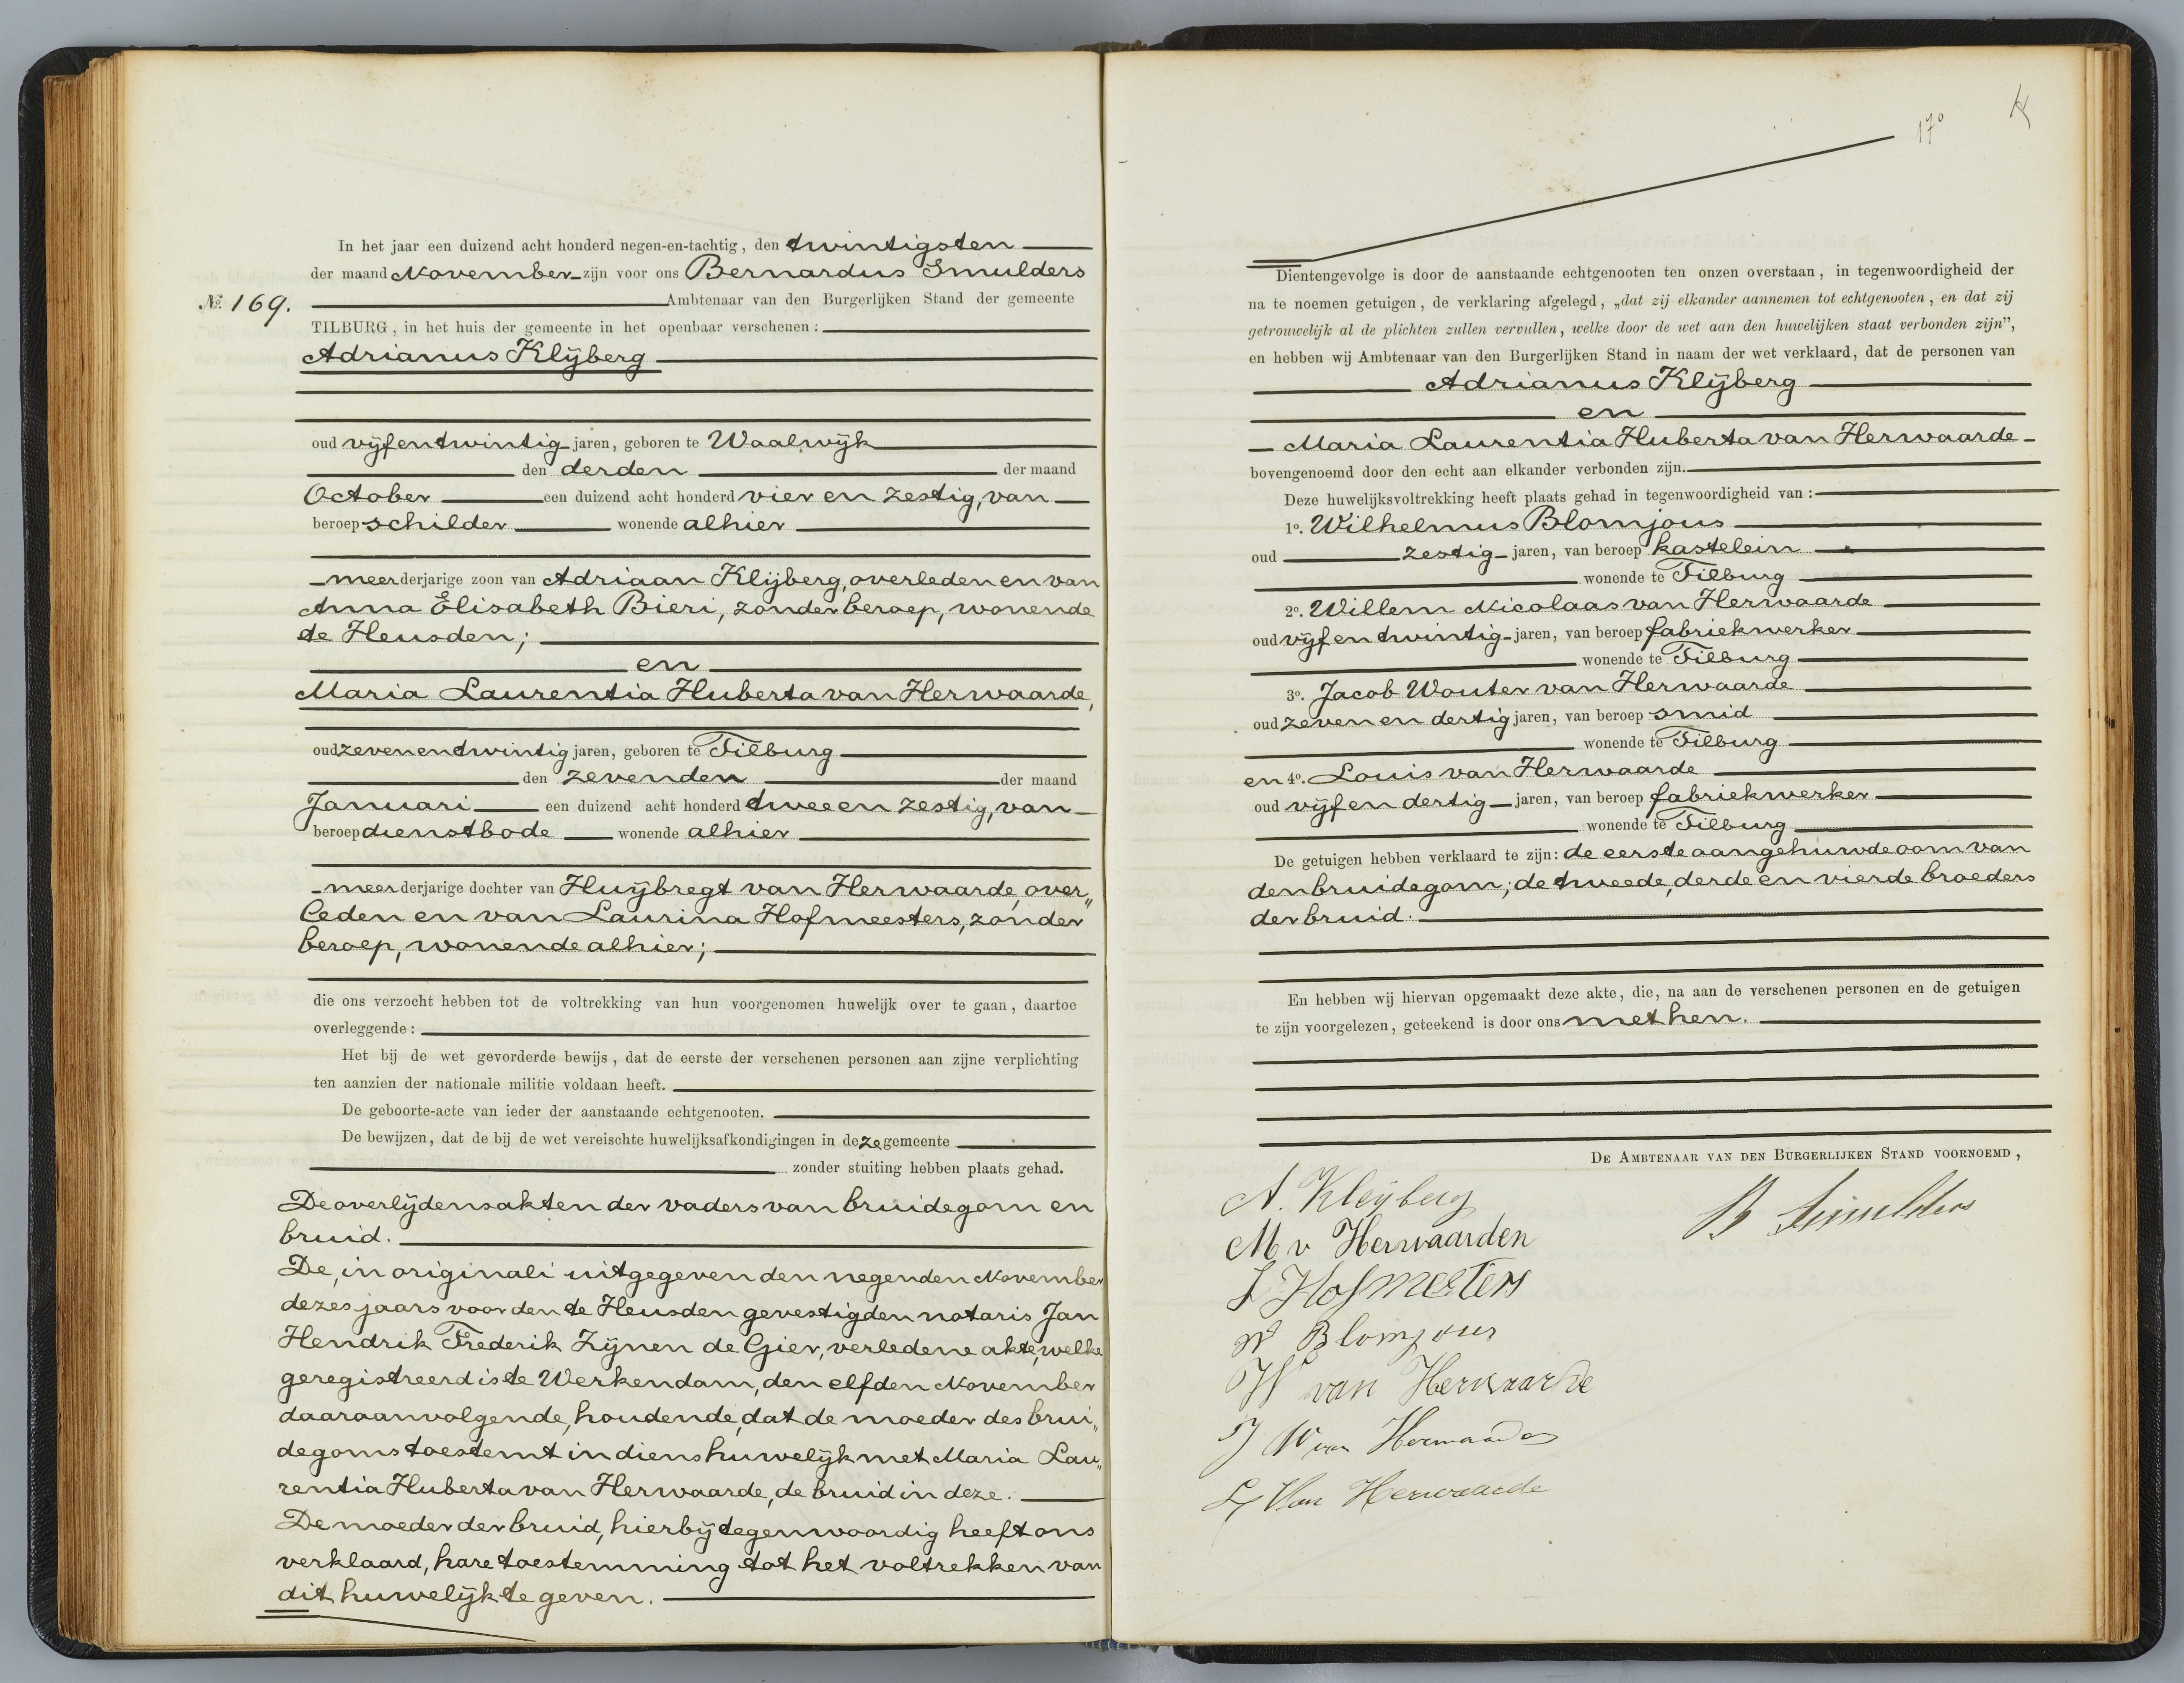 In het jaar een duizend acht honderd negen-en-tachtig, den twintigsten
der maand November zijn voor ons Bernardus Smulders
№. 169.
Ambtenaar van den Burgerlijken Stand der gemeente
TILBURG, in het huis der gemeente in het openbaar verschenen:
Adrianus Klijberg
oud vijfentwintig jaren, geboren te Waalwijk
den derden der maand
October een duizend acht honderd vier en zestig, van
beroep schilder wonende alhier
meerderjarige zoon van Adriaan Klijberg, overleden en van
Anna Elisabeth Bieri, zonder beroep, wonende
te Heusden;
en
Maria Laurentia Huberta van Herwaarde,
oud zevenentwintig jaren, geboren te Tilburg
den zevenden der maand
Januari een duizend acht honderd twee en zestig, van
beroep dienstbode wonende alhier
meerderjarige dochter van Huijbregt van Herwaarde, over„
leden en van Laurina Hofmeesters, zonder
beroep, wonende alhier;
die ons verzocht hebben tot de voltrekking van hun voorgenomen huwelijk over te gaan, daartoe
overleggende:
Het bij de wet gevorderde bewijs, dat de eerste der verschenen personen aan zijne verplichting
ten aanzien der nationale militie voldaan heeft.
De geboorte-acte van ieder der aanstaande echtgenooten.
De bewijzen, dat de bij de wet vereischte huwelijksafkondigingen in deze gemeente
zonder stuiting hebben plaats gehad.
De overlijdensakten der vaders van bruidegom en
bruid.
De, in originali uitgegeven den negenden November
dezes jaars voor den te Heusden gevestigden notaris Jan
Hendrik Frederik Zijnen de Gier, verledene akte, welke
geregistreerd is te Werkendam, den elfden November
daaraanvolgende, houdende, dat de moeder des brui„
degoms toestemt in diens huwelijk met Maria Lau„
rentia Huberta van Herwaarde, de bruid in deze.
De moeder der bruid, hierbij tegenwoordig heeft ons
verklaard, hare toestemming tot het voltrekken van
dit huwelijk te geven.
170
Dientengevolge is door de aanstaande echtgenooten ten onzen overstaan, in tegenwoordigheid der
na te noemen getuigen, de verklaring afgelegd, „dat zij elkander aannemen tot echtgenooten, en dat zij
getrouwelijk al de plichten zullen vervullen, welke door de wet aan den huwelijken staat verbonden zijn”,
en hebben wij Ambtenaar van den Burgerlijken Stand in naam der wet verklaard, dat de personen van
Adrianus Klijberg
en
Maria Laurentia Huberta van Herwaarde
bovengenoemd door den echt aan elkander verbonden zijn.
Deze huwelijksvoltrekking heeft plaats gehad in tegenwoordigheid van:
1o. Wilhelmus Blomjous
oud zestig jaren, van beroep kastelein
wonende te Tilburg
2o. Willem Nicolaas van Herwaarde
oud vijf en twintig jaren, van beroep fabriekwerker
wonende te Tilburg
3o. Jacob Wouter van Herwaarde
oud zeven en dertig jaren, van beroep smid
wonende te Tilburg
en 4o. Louis van Herwaarde
oud vijf en dertig jaren, van beroep fabriekwerker
wonende te Tilburg
De getuigen hebben verklaard te zijn: de eerste aangehuwde oom van
den bruidegom; de tweede, derde en vierde broeders
der bruid.
En hebben wij hiervan opgemaakt deze akte, die, na aan de verschenen personen en de getuigen
te zijn voorgelezen, geteekend is door ons met hen.
DE AMBTENAAR VAN DEN BURGERLIJKEN STAND VOORNOEMD,
A. Kleyberg
B Smulders
M v Herwaarden
L Hofmeesters
W Blomjous
W van Herwaarde
J W van Herwaarden
L Van Herwaarde